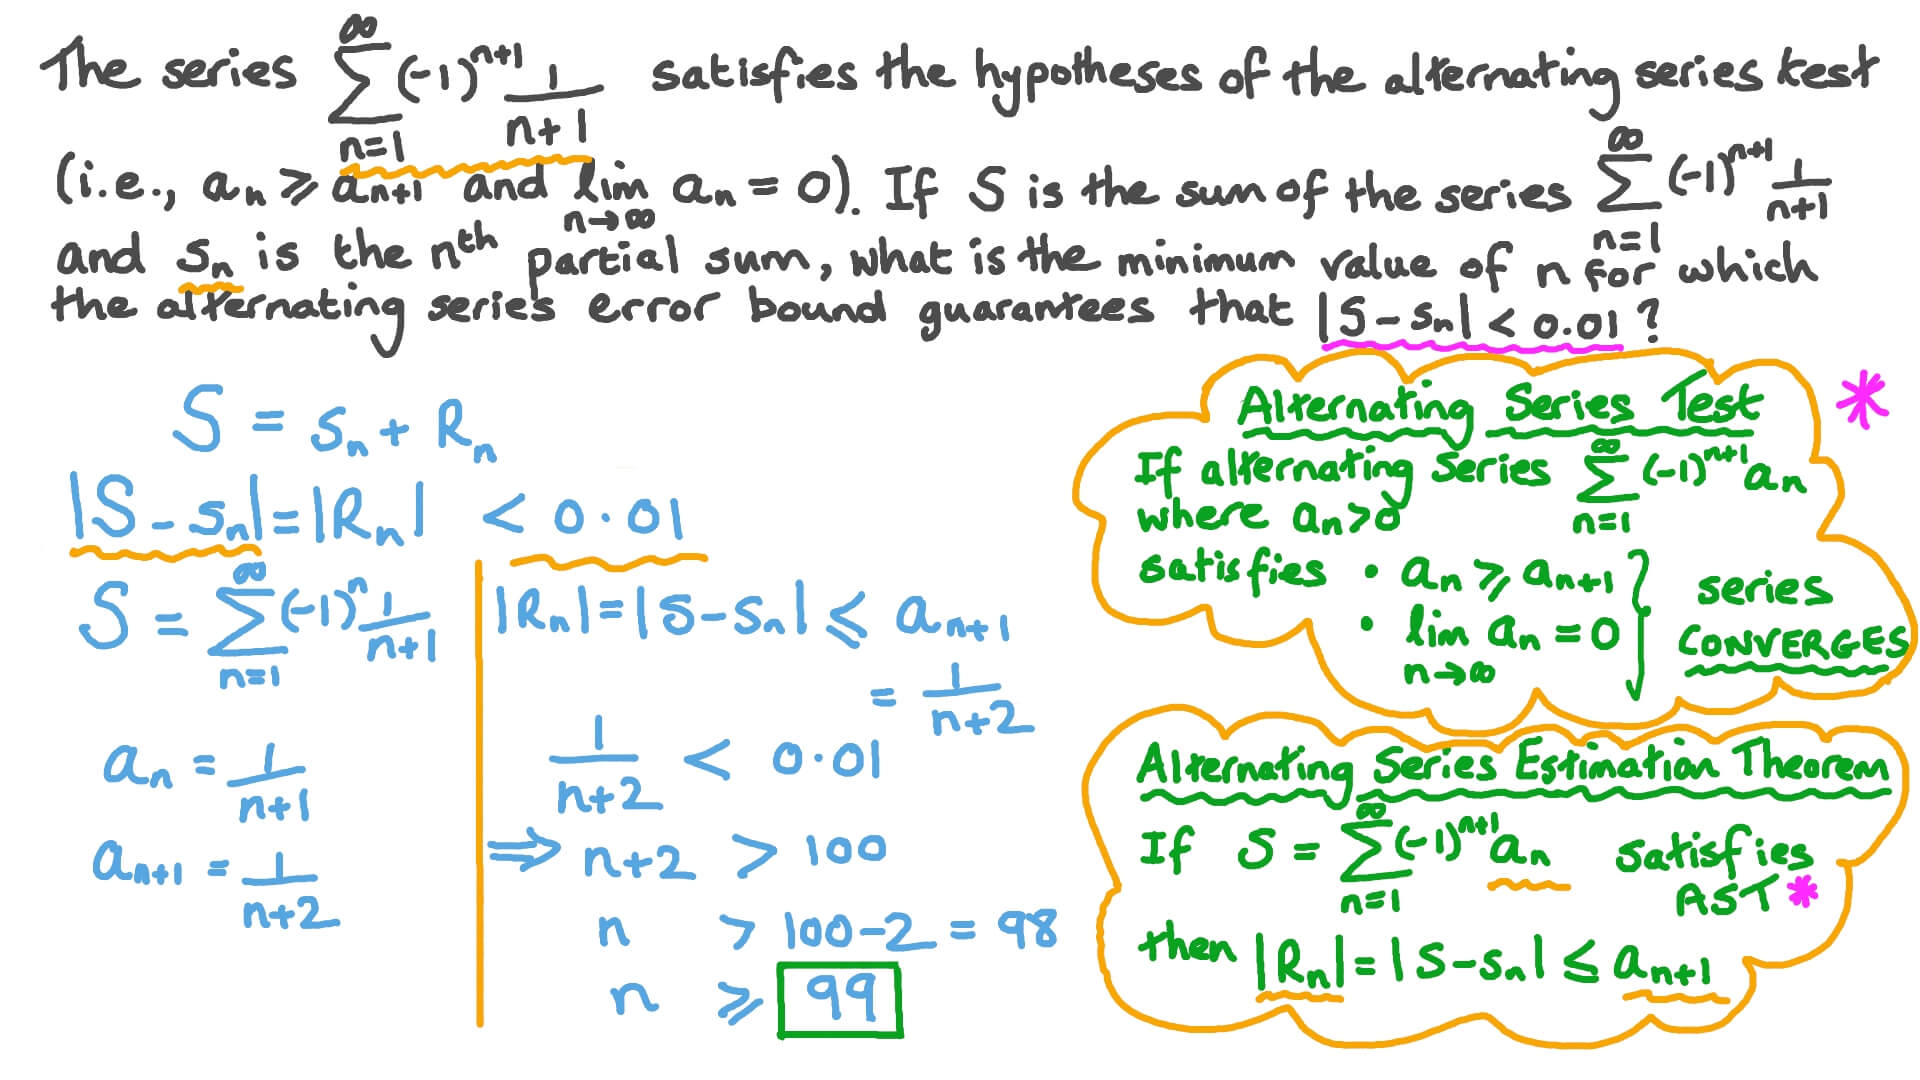 The series ∞∑n=1 (-1)^{n+1} 1/(n+1) satisfies the hypotheses of the alternating series test
(i.e., a_n ⩾ a_{n+1} and lim n→∞ a_n = 0). If S is the sum of the series ∞∑n=1 (-1)^{n+1} 1/(n+1)
and s_n is the n^{th} partial sum, what is the minimum value of n for which
the alternating series error bound guarantees that |S - s_n| < 0.01 ?
S = s_n + R_n
|S - s_n| = |R_n| < 0.01
S = ∞∑n=1 (-1)^n 1/(n+1)
a_n = 1/(n+1)
a_{n+1} = 1/(n+2)
|R_n| = |S - s_n| ⩽ a_{n+1}
= 1/(n+2)
1/(n+2) < 0.01
⇒ n+2 > 100
n > 100-2 = 98
n ⩾ 99
Alternating Series Test *
If alternating series ∞∑n=1 (-1)^{n+1} a_n
where a_n > 0
satisfies • a_n ⩾ a_{n+1}
• lim n→∞ a_n = 0
} series
CONVERGES
Alternating Series Estimation Theorem
If S = ∞∑n=1 (-1)^{n+1} a_n satisfies
AST *
then |R_n| = |S - s_n| ≤ a_{n+1}